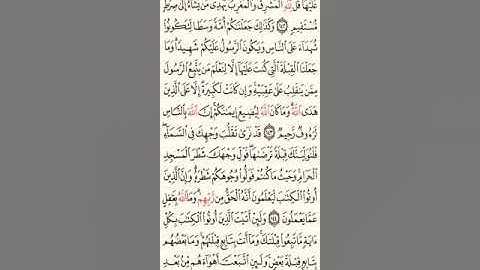 عَلَيْهَا قُل لِّلَّهِ الْمَشْرِقُ وَالْمَغْرِبُ يَهْدِي مَن يَشَاءُ إِلَىٰ صِرَٰطٍ
مُّسْتَقِيمٍ ۝١٤٢ وَكَذَٰلِكَ جَعَلْنَٰكُمْ أُمَّةً وَسَطًا لِّتَكُونُوا
شُهَدَاءَ عَلَى النَّاسِ وَيَكُونَ الرَّسُولُ عَلَيْكُمْ شَهِيدًا وَمَا
جَعَلْنَا الْقِبْلَةَ الَّتِي كُنتَ عَلَيْهَا إِلَّا لِنَعْلَمَ مَن يَتَّبِعُ الرَّسُولَ
مِمَّن يَنقَلِبُ عَلَىٰ عَقِبَيْهِ وَإِن كَانَتْ لَكَبِيرَةً إِلَّا عَلَى الَّذِينَ
هَدَى اللَّهُ وَمَا كَانَ اللَّهُ لِيُضِيعَ إِيمَٰنَكُمْ إِنَّ اللَّهَ بِالنَّاسِ
لَرَءُوفٌ رَّحِيمٌ ۝١٤٣ قَدْ نَرَىٰ تَقَلُّبَ وَجْهِكَ فِي السَّمَاءِ
فَلَنُوَلِّيَنَّكَ قِبْلَةً تَرْضَىٰهَا فَوَلِّ وَجْهَكَ شَطْرَ الْمَسْجِدِ
الْحَرَامِ وَحَيْثُ مَا كُنتُمْ فَوَلُّوا وُجُوهَكُمْ شَطْرَهُ وَإِنَّ الَّذِينَ
أُوتُوا الْكِتَٰبَ لَيَعْلَمُونَ أَنَّهُ الْحَقُّ مِن رَّبِّهِمْ وَمَا اللَّهُ بِغَٰفِلٍ
عَمَّا يَعْمَلُونَ ۝١٤٤ وَلَئِنْ أَتَيْتَ الَّذِينَ أُوتُوا الْكِتَٰبَ بِكُلِّ
ءَايَةٍ مَّا تَبِعُوا قِبْلَتَكَ وَمَا أَنتَ بِتَابِعٍ قِبْلَتَهُمْ وَمَا بَعْضُهُم
بِتَابِعٍ قِبْلَةَ بَعْضٍ وَلَئِنِ اتَّبَعْتَ أَهْوَاءَهُم مِّن بَعْدِ